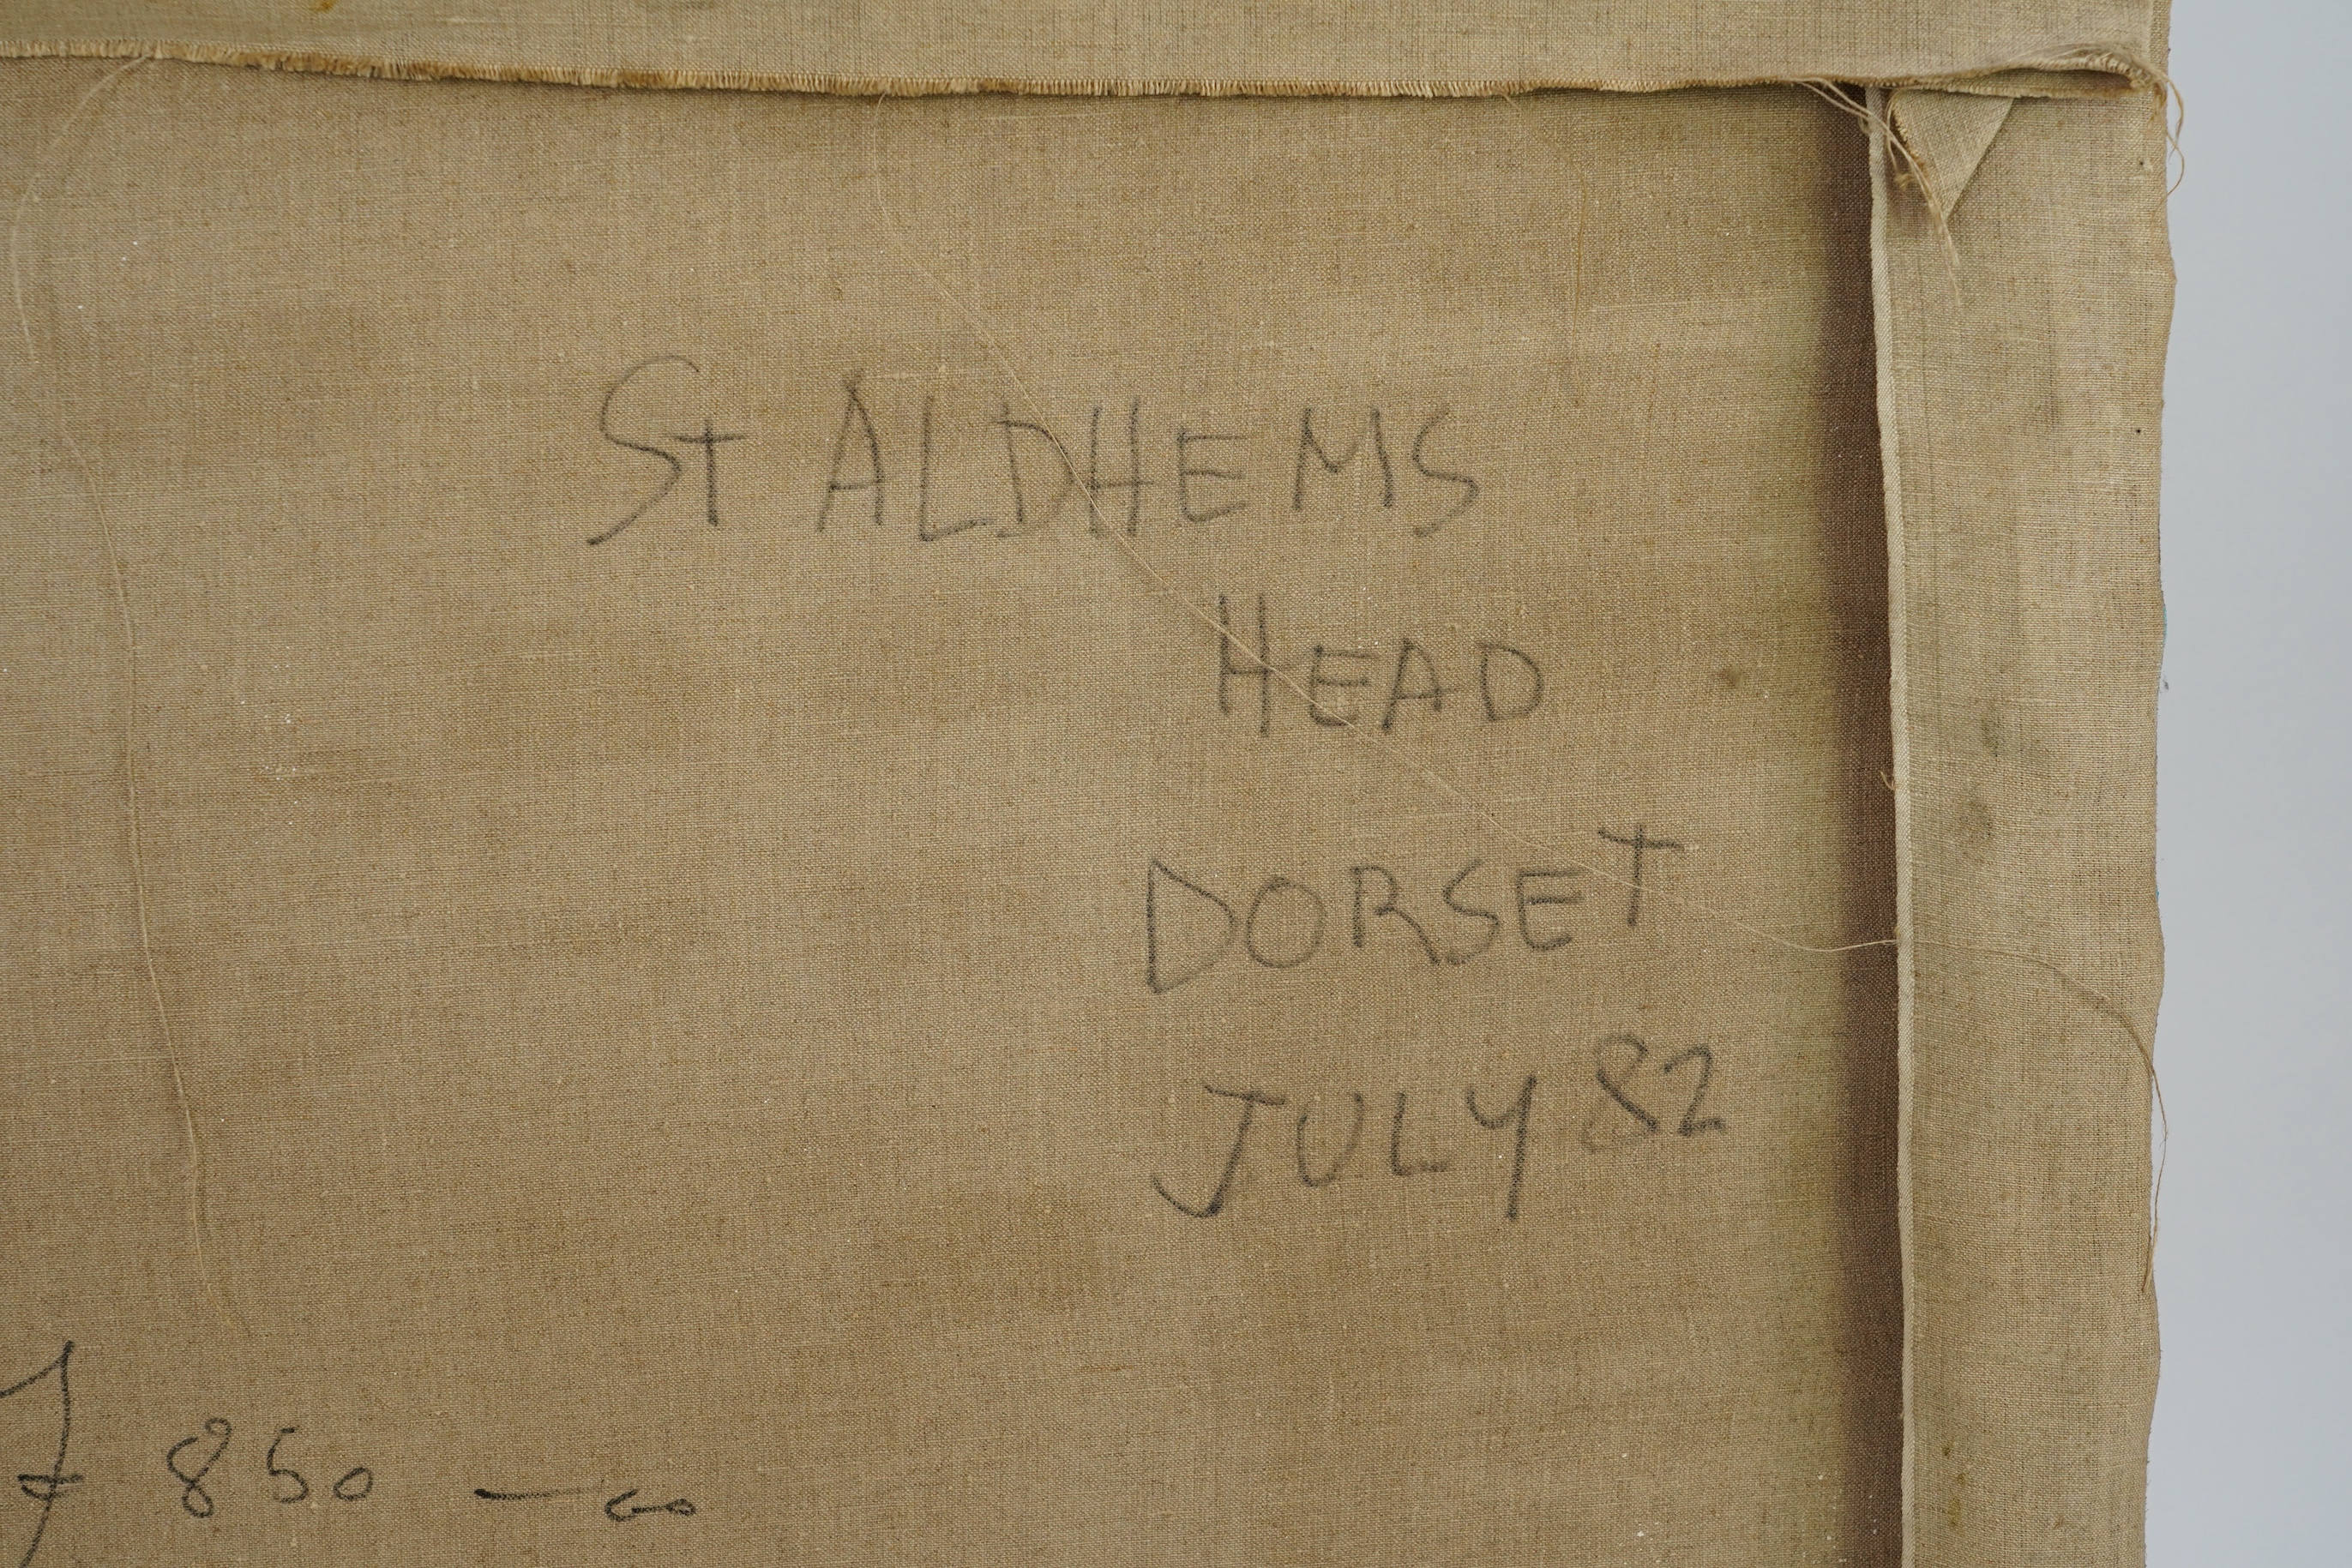 St ALDHEMS
HEAD
DORSET
JULY 82
£ 850 — 00